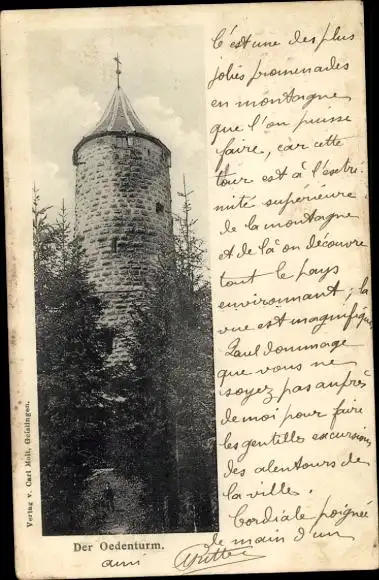 C'est une des plus
jolies promenades
en montagne
que l'on puisse
faire, car cette
tour est à l'extré-
mité supérieure
de la montagne
et de là on découvre
tout le pays
environnant; la
vue est magnifique
dommage
que vous ne
soyez pas auprès
de moi pour faire
les gentilles excursions
des alentours de
la ville.
Cordiale poignée
de main d'un
ami
Verlag v. Carl Moll, Geislingen.
Der Oedenturm.